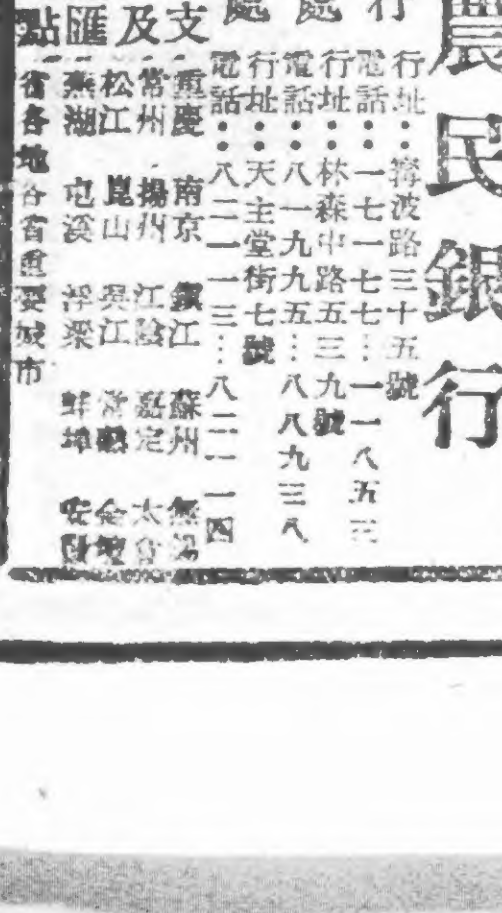 農民銀行
行
行址：寧波路三十五號
電話：一七一七七：一一八五三
處
行址：林森中路五三九號
電話：八一九九五：八八九三八
處
行址：天主堂街七號
電話：八二一一三：八二一一四
支及匯點
重慶 南京 鎮江 蘇州 無錫
常州 揚州 江陰 嘉定 太倉
松江 崑山 吳江 常熟 金壇
蕪湖 屯溪 浮梁 蚌埠 安慶
省各地各省重要城市